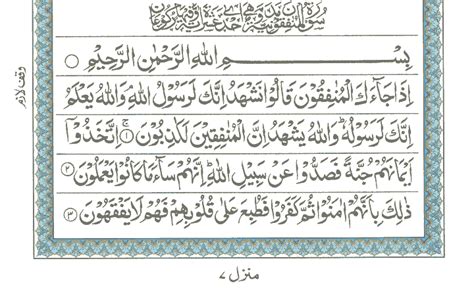 سُوْرَةُ الْمُنٰفِقُوْنَ مَدَنِيَّةٌ وَّهِيَ اِحْدٰى عَشْرَةَ اٰيَةً وَّفِيْهَا رُكُوْعَانِ
بِسْمِ اللّٰهِ الرَّحْمٰنِ الرَّحِيْمِ
اِذَا جَآءَكَ الْمُنٰفِقُوْنَ قَالُوْا نَشْهَدُ اِنَّكَ لَرَسُوْلُ اللّٰهِ ۘ وَاللّٰهُ يَعْلَمُ
اِنَّكَ لَرَسُوْلُهٗ ؕ وَاللّٰهُ يَشْهَدُ اِنَّ الْمُنٰفِقِيْنَ لَكٰذِبُوْنَ ۚ‏ ۱ اِتَّخَذُوْۤا
اَيْمَانَهُمْ جُنَّةً فَصَدُّوْا عَنْ سَبِيْلِ اللّٰهِ ؕ اِنَّهُمْ سَآءَ مَا كَانُوْا يَعْمَلُوْنَ ۲
ذٰلِكَ بِاَنَّهُمْ اٰمَنُوْا ثُمَّ كَفَرُوْا فَطُبِعَ عَلٰى قُلُوْبِهِمْ فَهُمْ لَا يَفْقَهُوْنَ ۳
وقف لازم
منزل ۷